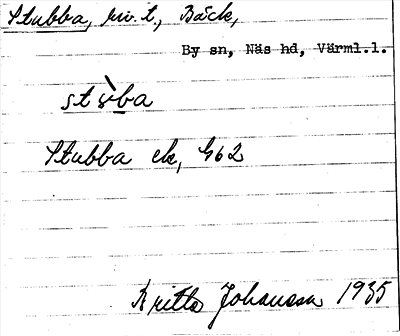 Stubba, hv. t., Bäck,
By sn, Näs hd, Värml.l.
stùba
Stubba ek, G62
Britta Johansson 1935